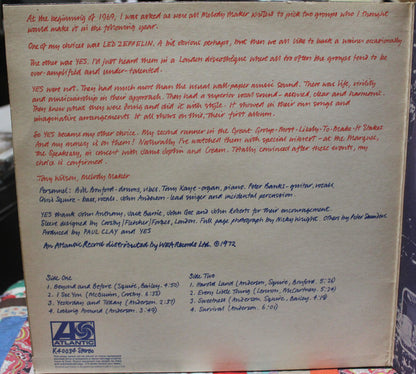 At the beginning of 1969, I was asked as were all Melody Maker writers to pick two groups who I thought
would make it in the following year.
One of my choices was LED ZEPPELIN. A bit obvious perhaps, but then we all like to back a winner occasionally.
The other was YES. I'd just heard them in a London discotheque where all too often the groups tend to be
over-amplified and under-talented.
YES were not. They had much more than the usual wall-paper music sound. There was life, virility
and musicianship in their approach. They had a superior vocal sound - assured, clear and harmonic.
They knew what they were doing and did it with style. It showed in their own songs and
imaginative arrangements. It all shows on this, their first album.
So YES became my other choice. My second runner in the Great Group-Most-Likely-To-Make-It Stakes
And my money is on them! Naturally I've watched them with special interest - at the Marquee,
the Speakeasy, in concert with Janis Joplin and Cream. Totally convinced after these events, my
choice is confirmed.
Tony Wilson, Melody Maker
Personnel: Bill Bruford - drums, vibes. Tony Kaye - organ, piano. Peter Banks - guitar, vocals
Chris Squire - bass, vocals. John Anderson - lead singer and incidental percussion.
YES thank John Anthony, Jack Barrie, John Gee and John Roberts for their encouragement.
Sleeve designed by Crosby/Fletcher/Forbes, London. Full page photograph by Nicky Wright. Others by Peter Saunders
Produced by PAUL CLAY and YES
An Atlantic Record distributed by WEA Records Ltd. ℗ 1972
Side One
1. Beyond and Before (Squire, Bailey. 4:50)
2. I See You (McGuinn, Crosby. 6:33)
3. Yesterday and Today (Anderson. 2:37)
4. Looking Around (Anderson. 3:49)
Side Two
1. Harold Land (Anderson, Squire, Bruford. 5:26)
2. Every Little Thing (Lennon, McCartney. 5:24)
3. Sweetness (Anderson, Squire, Bailey. 4:19)
4. Survival (Anderson. 6:01)
ATLANTIC
K40034 Stereo